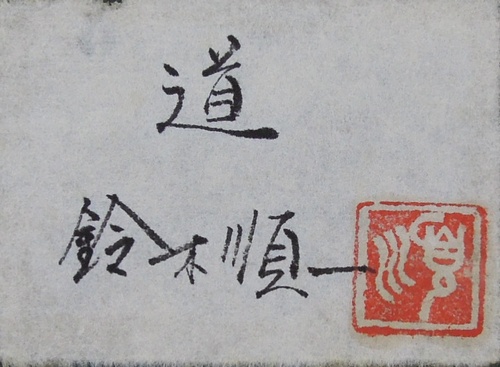 道
鈴木順一
順